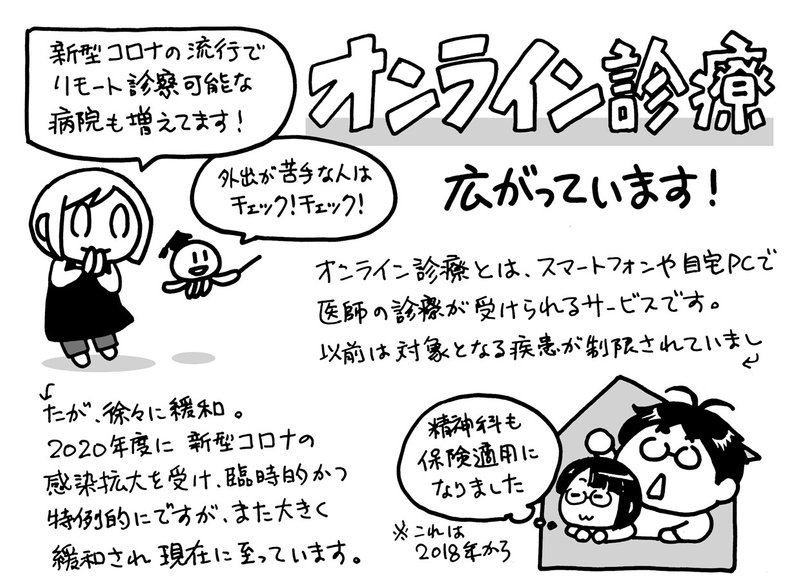 新型コロナの流行で
リモート診察可能な
病院も増えてます!
オンライン診療
広がっています!
外出が苦手な人は
チェック!チェック!
オンライン診療とは、スマートフォンや自宅PCで
医師の診療が受けられるサービスです。
以前は対象となる疾患が制限されていまし
たが、徐々に緩和。
2020年度に新型コロナの
感染拡大を受け、臨時的かつ
特例的にですが、また大きく
緩和され現在に至っています。
精神科も
保険適用に
なりました
※これは
2018年から